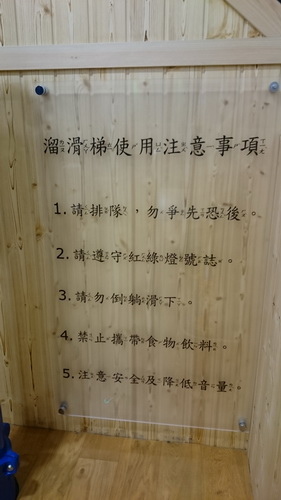 溜滑梯使用注意事項
1.請排隊，勿爭先恐後。
2.請遵守紅綠燈號誌。
3.請勿倒躺滑下。
4.禁止攜帶食物飲料。
5.注意安全及降低音量。